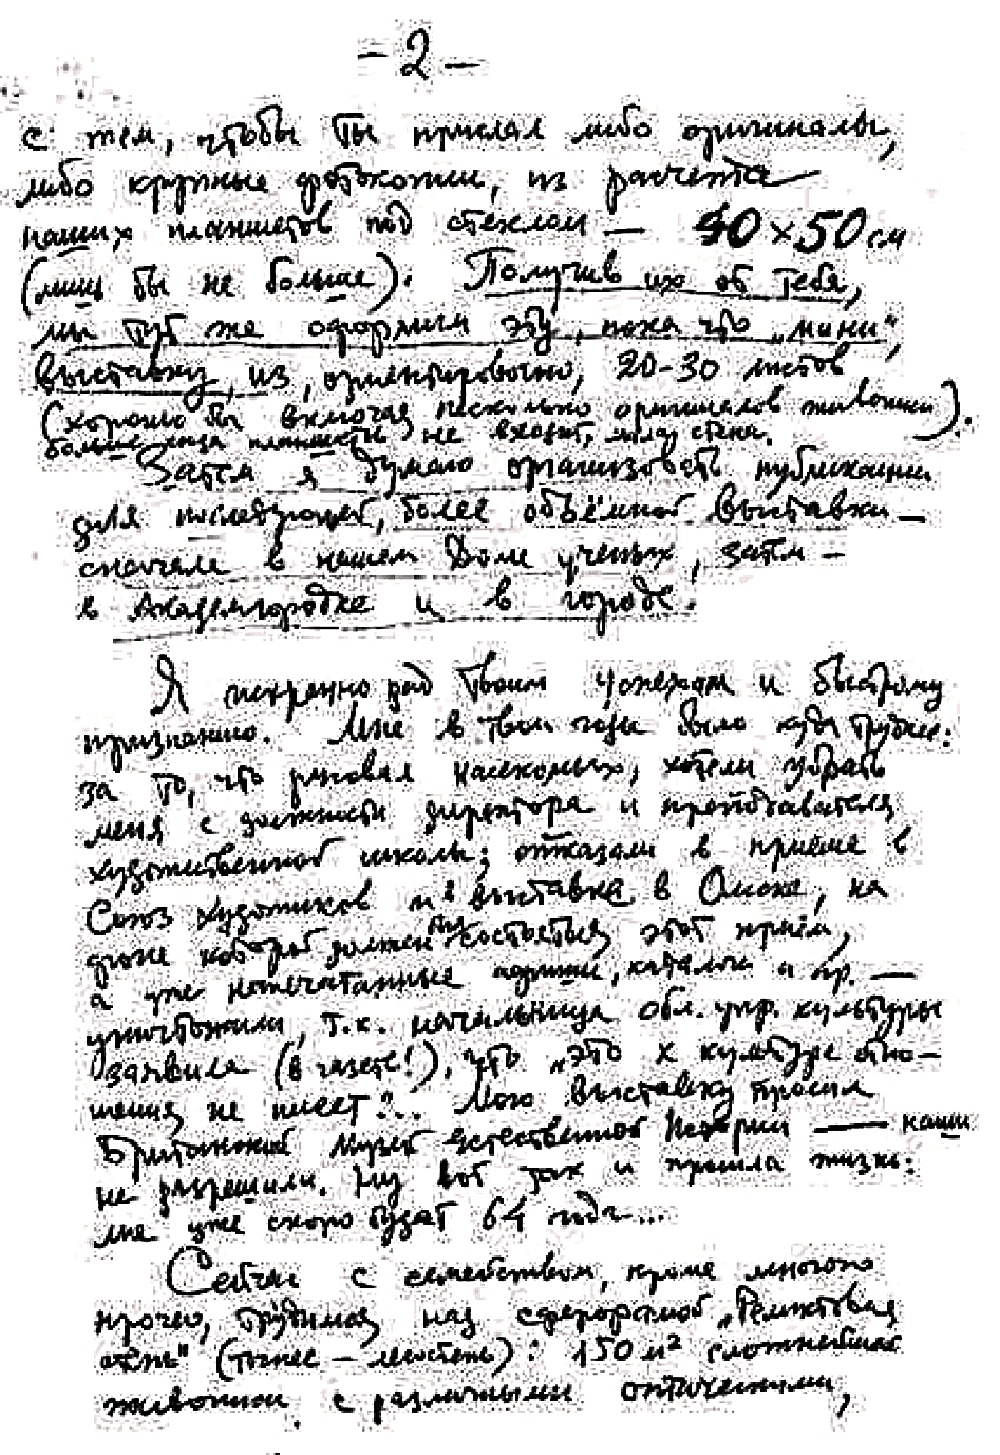 – 2 –
с тем, чтобы ты прислал либо оригиналы,
либо крупные фотокопии, из расчета
наших планшетов под стеклом — 40 × 50 см
(лишь бы не больше). Получив их от тебя,
мы тут же оформим эту, пока что „мини“,
выставку, из, ориентировочно, 20–30 листов
(хорошо бы включая несколько оригиналов живописи).
больше наши планшеты не входит, мало стены.
Затем я думаю организовать публикации
для последующей, более объёмной выставки —
сначала в нашем Доме учёных, затем —
в Академгородке и в городе.
Я искренно рад твоим успехам и быстрому
признанию. Мне в твои годы было куда труднее:
за то, что рисовал насекомых, хотели убрать
меня с должности директора и преподавателя
художественной школы; отказали в приёме в
Союз художников и в выставке в Омске, на
фоне которой должен был состояться этот приём,
а уже напечатанные афиши, каталоги и пр. —
уничтожили, т.к. начальница обл. упр. культуры
заявила (в газете!), что „это к культуре отно-
шения не имеет“... Мою выставку просил
Британский музей естественной Истории — наши
не разрешили. Ну вот так и прошла жизнь:
мне уже скоро будет 64 года...
Сейчас с семейством, кроме многого
прочего, трудимся над сферорамой „Реликтовая
степь“ (точнее — лесостепь): 150 м² сложнейшей
живописи с различными оптическими,